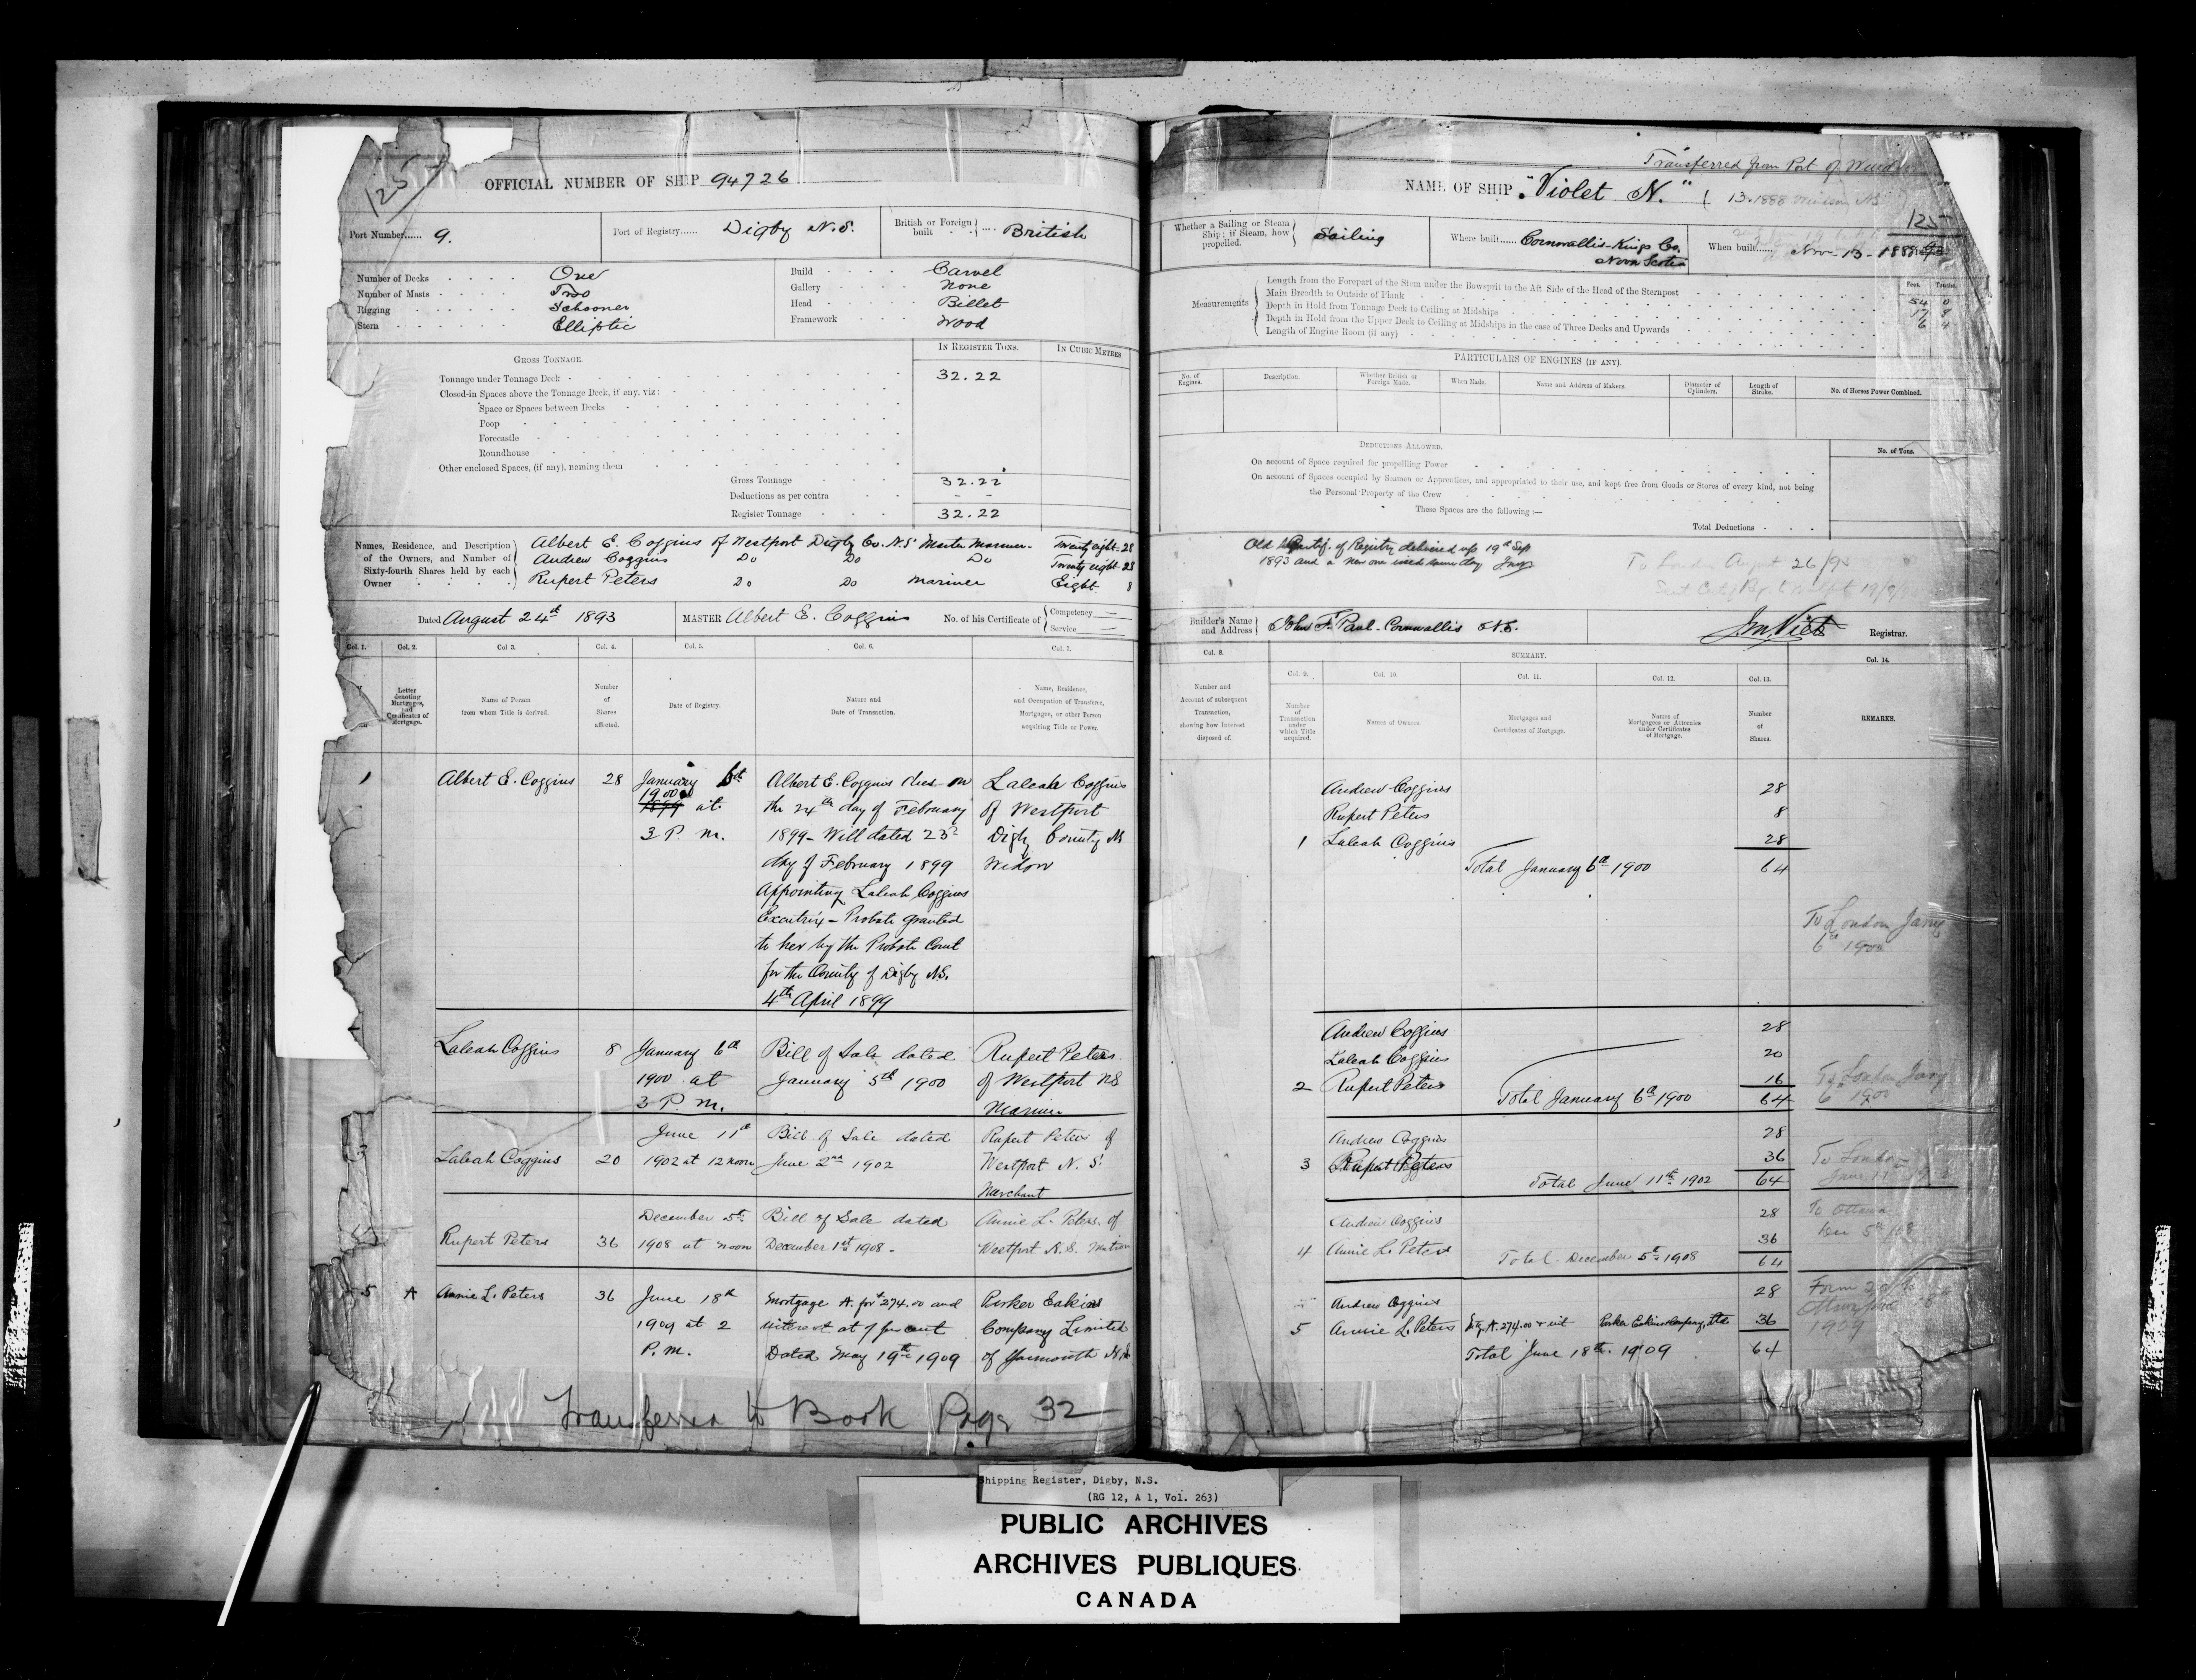 125
OFFICIAL NUMBER OF SHIP 94726
Port Number...... 9.
Port of Registry...... Digby N.S.
British or Foreign built British
Number of Decks One
Number of Masts Two
Rigging Schooner
Stern Elliptic
Build Carvel
Gallery None
Head Billet
Framework Wood
GROSS TONNAGE.
IN REGISTER TONS.
IN CUBIC METRES
Tonnage under Tonnage Deck 32.22
Closed-in Spaces above the Tonnage Deck, if any, viz:
Space or Spaces between Decks
Poop
Forecastle
Roundhouse
Other enclosed Spaces, (if any), naming them
Gross Tonnage 32.22
Deductions as per contra - -
Register Tonnage 32.22
Names, Residence, and Description of the Owners, and Number of Sixty-fourth Shares held by each Owner
Albert E. Coggins of Westport Digby Co. N.S. Master Mariner - Twenty eight - 28
Andrew Coggins Do Do Do Twenty eight - 28
Rupert Peters Do Do Mariner Eight 8
Dated August 24th 1893
MASTER Albert E. Coggins
No. of his Certificate of Competency Service
Col. 1. Col. 2. Col. 3. Col. 4. Col. 5. Col. 6. Col. 7.
Letter denoting Mortgages, and Certificates of Mortgage.
Name of Person from whom Title is derived.
Number of Shares affected.
Date of Registry.
Nature and Date of Transaction.
Name, Residence, and Occupation of Transferee, Mortgagee, or other Person acquiring Title or Power.
1 Albert E. Coggins 28 January 6th Albert E. Coggins died on Laleah Coggins
1900 1899 at the 24th day of February of Westport
3 P. M. 1899 - Will dated 23d Digby County NS
day of February 1899 Widow
Appointing Laleah Coggins
Executrix - Probate granted
to her by the Probate Court
for the County of Digby NS.
4th April 1899
Laleah Coggins 8 January 6th Bill of Sale dated Rupert Peters
1900 at January 5th 1900 of Westport NS
3 P. M. Mariner
3 June 11th Bill of Sale dated Rupert Peters of
Laleah Coggins 20 1902 at 12 noon June 2nd 1902 Westport N. S.
Merchant
December 5th Bill of Sale dated Annie L. Peters of
Rupert Peters 36 1908 at noon December 1st 1908 - Westport N.S.
5 A Annie L. Peters 36 June 18th Mortgage A. for $274.00 and Parker Eakins
1909 at 2 interest at 7 per cent Company Limited
P. M. Dated May 19th 1909 of Yarmouth N.S.
Transferred to Book Page 32
Transferred from Port of
NAME OF SHIP "Violet N." ( 13-1888 Windsor NS
125
Whether a Sailing or Steam Ship; if Steam, how propelled. Sailing
Where built...... Cornwallis - Kings Co. Nova Scotia
When built...... Nov - 13 - 1888
Measurements
Feet. Tenths.
Length from the Forepart of the Stem under the Bowsprit to the Aft Side of the Head of the Sternpost 54 0
Main Breadth to Outside of Plank 17 8
Depth in Hold from Tonnage Deck to Ceiling at Midships 6 4
Depth in Hold from the Upper Deck to Ceiling at Midships in the case of Three Decks and Upwards
Length of Engine Room (if any)
PARTICULARS OF ENGINES (IF ANY).
No. of Engines. Description. Whether British or Foreign Made. When Made. Name and Address of Makers. Diameter of Cylinders. Length of Stroke. No. of Horses Power Combined.
DEDUCTIONS ALLOWED. No. of Tons.
On account of Space required for propelling Power
On account of Spaces occupied by Seamen or Apprentices, and appropriated to their use, and kept free from Goods or Stores of every kind, not being
the Personal Property of the Crew
These Spaces are the following :—
Total Deductions
Old Certif. of Registry delivered up 19th Sep
1893 and a new one issued same day
To London August 26/93
Builder's Name and Address John F. Paul - Cornwallis N.S.
J M Viets Registrar.
Col. 8. SUMMARY. Col. 14.
Col. 9. Col. 10. Col. 11. Col. 12. Col. 13.
Number and Account of subsequent Transaction, showing how Interest disposed of.
Number of Transaction under which Title acquired.
Names of Owners.
Mortgages and Certificates of Mortgage.
Names of Mortgagees or Attornies under Certificates of Mortgage.
Number of Shares.
REMARKS.
Andrew Coggins 28
Rupert Peters 8
1 Laleah Coggins 28
Total January 6th 1900 64
To London Jany
6th 1900
Andrew Coggins 28
Laleah Coggins 20
2 Rupert Peters 16 To London Jany
Total January 6th 1900 64 6th 1900
Andrew Coggins 28
3 Rupert Peters 36 To London
Total June 11th 1902 64 June 11
Andrew Coggins 28 To Ottawa
4 Annie L. Peters 36 Dec 5th 08
Total December 5th 1908 64
Andrew Coggins 28
5 Annie L. Peters Mtg A. 274.00 & int Parker Eakins Company Ltd 36 1909
Total June 18th 1909 64
Shipping Register, Digby, N.S.
(RG 12, A 1, Vol. 263)
PUBLIC ARCHIVES
ARCHIVES PUBLIQUES
CANADA